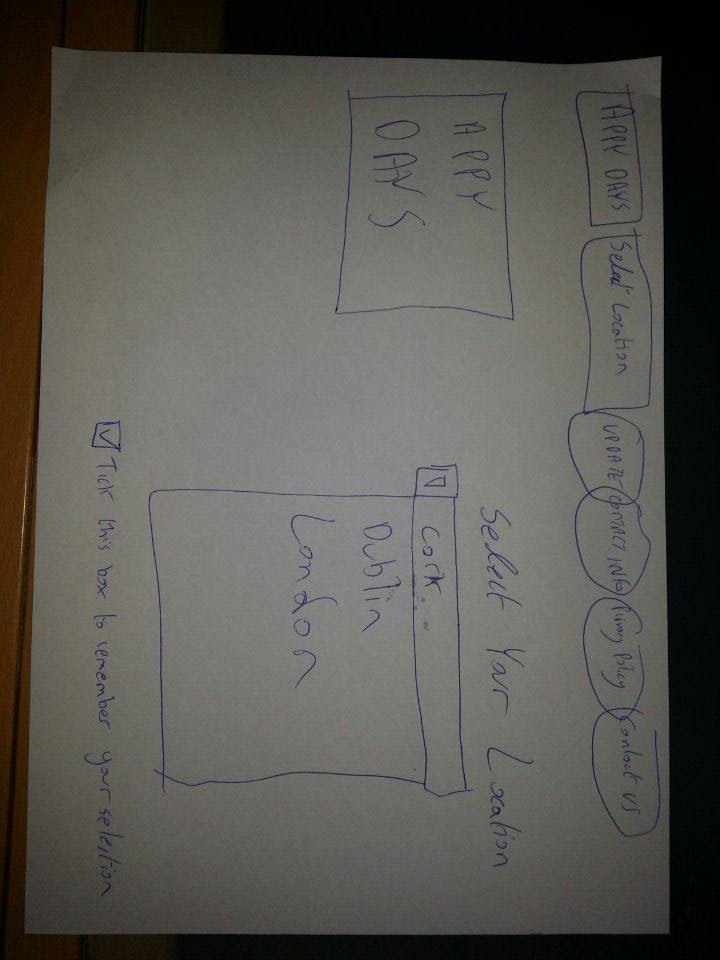 APPY DAYS Select Location UPDATE CONTACT INFO Privacy Policy Contact US
APPY
DAYS
Select Your Location
Cork
Dublin
London
Tick this box to remember your selection